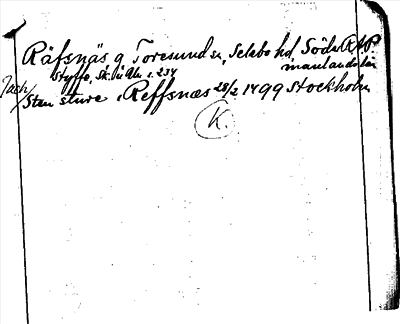 Räfsnäs g Toresund sn, Selebo hd, Söder RAP.
manlands län
Styffe, Sk. u. Un. s. 234
Sten Sture i Reffsnæs 28/2 1499 Stockholm
K.